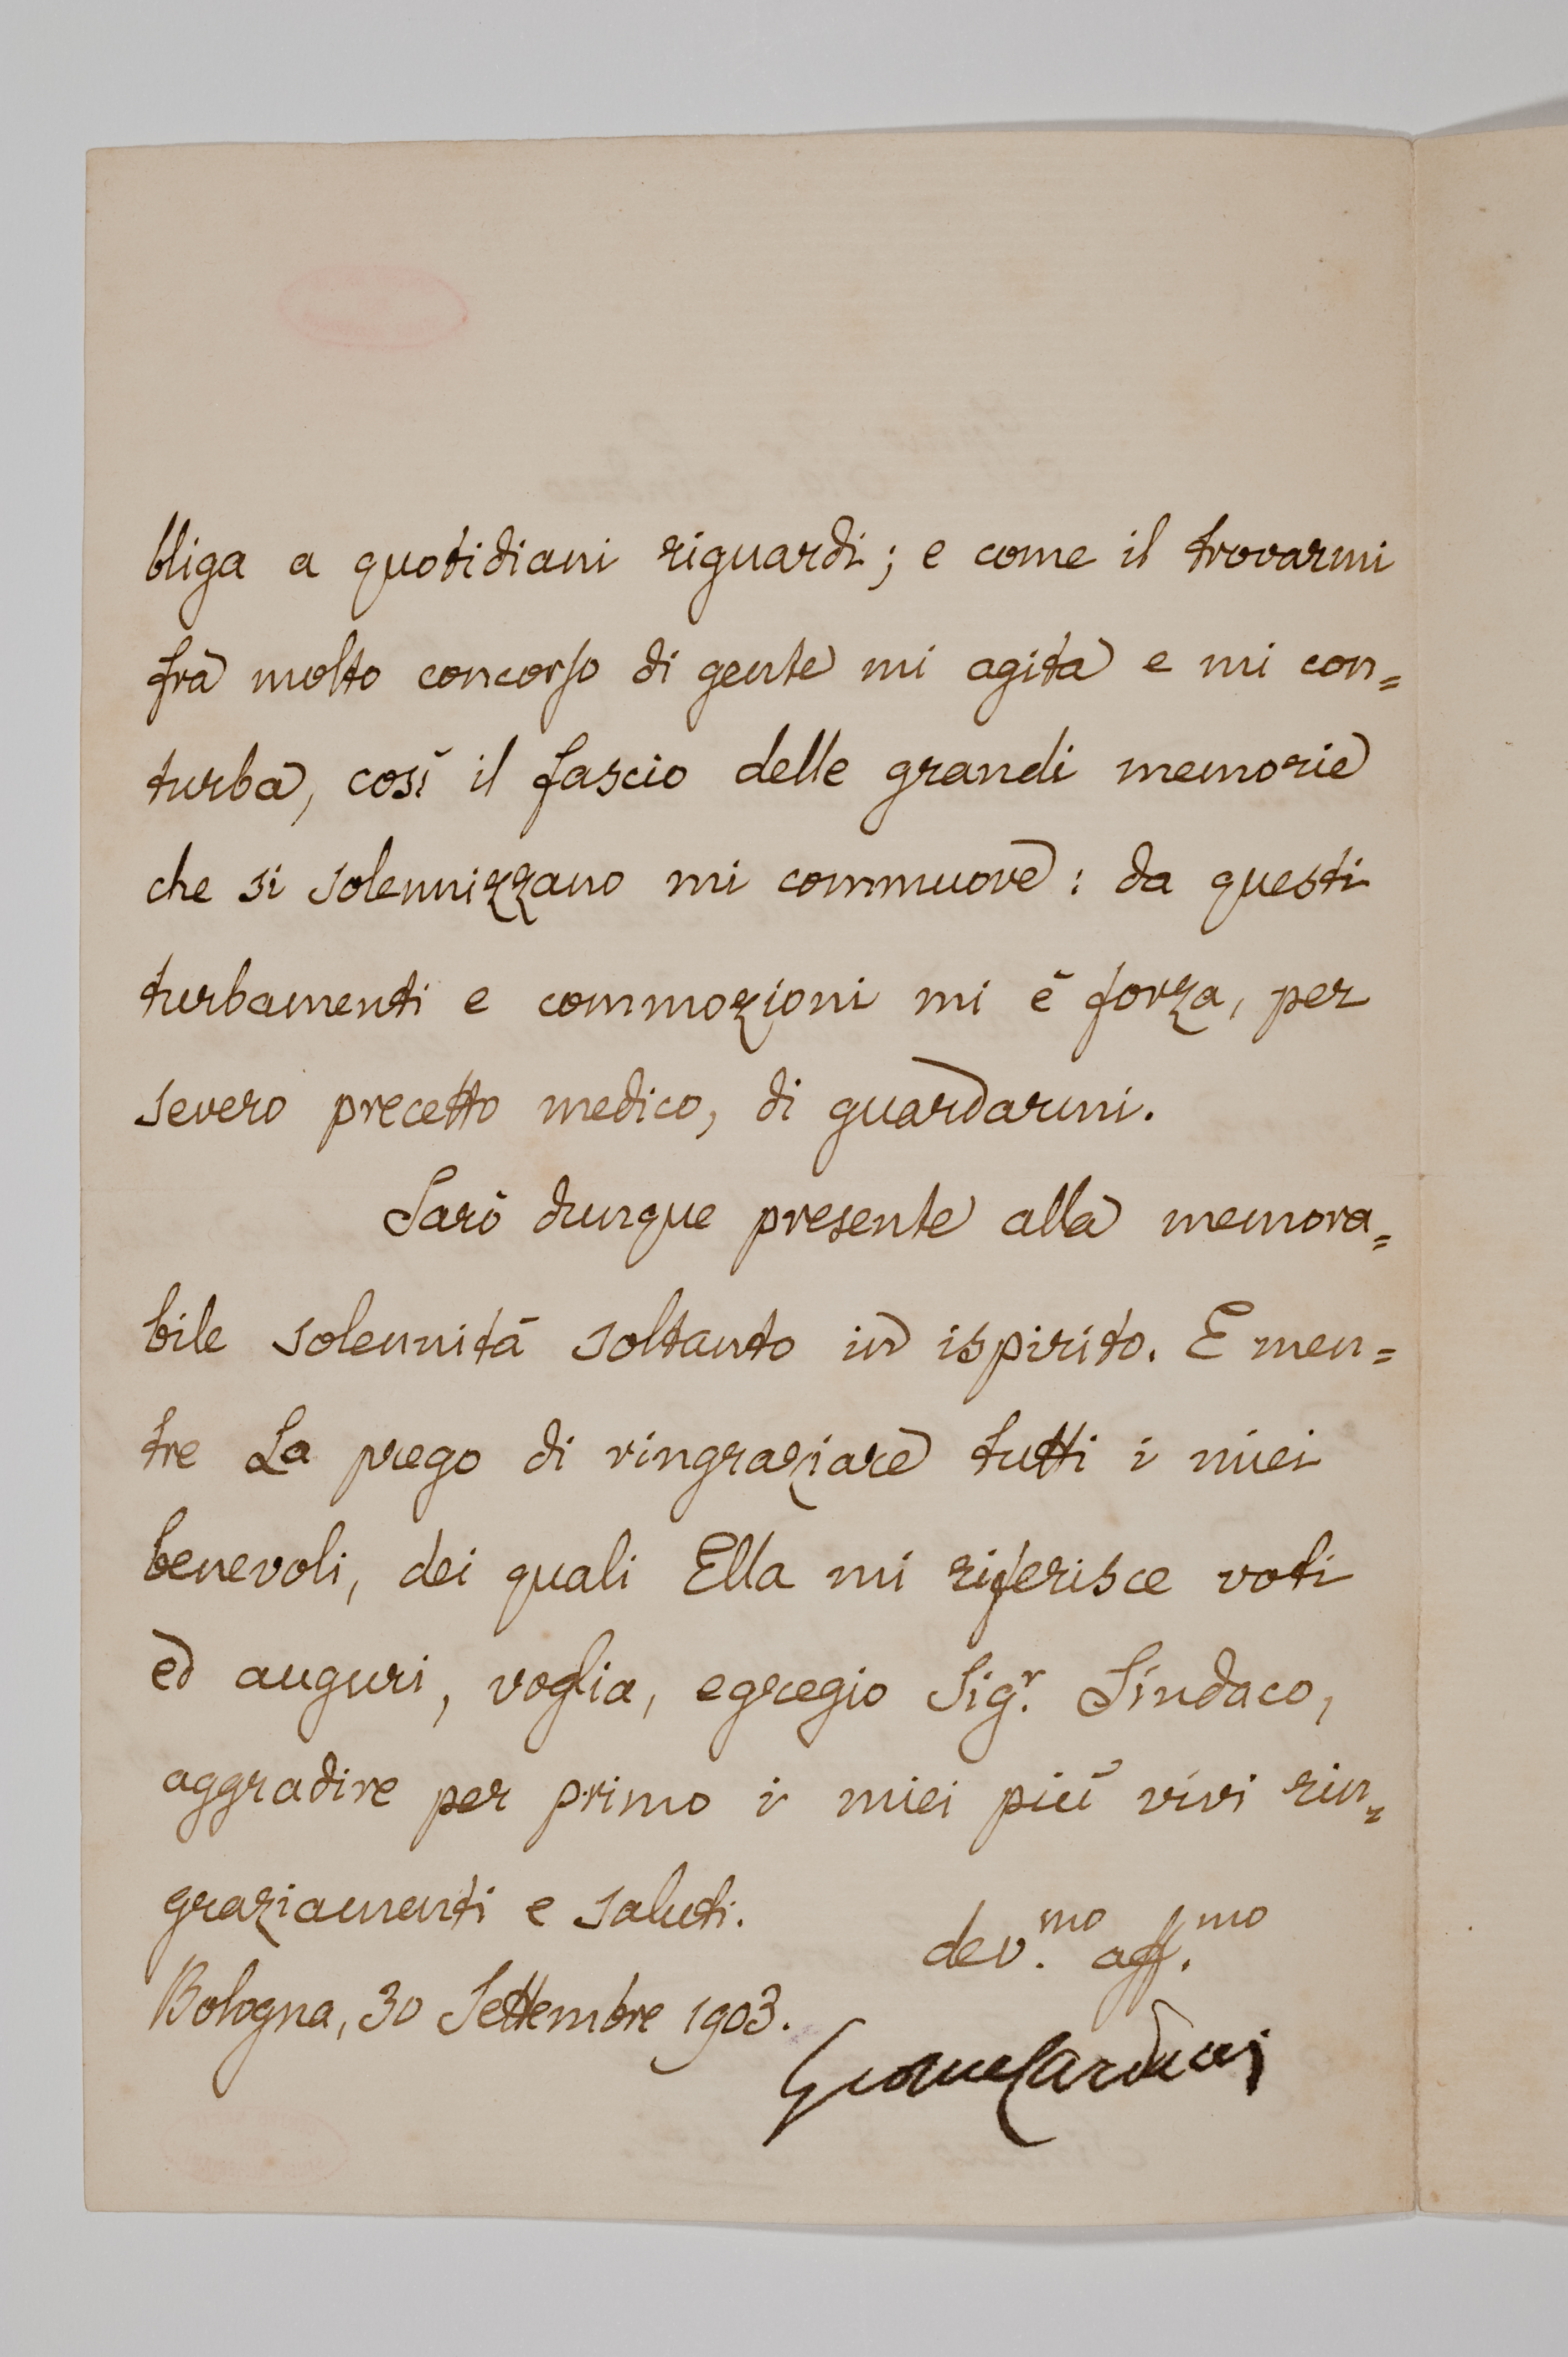 bliga a quotidiani riguardi; e come il trovarmi
fra molto concorso di gente mi agita e mi con=
turba, così il fascio delle grandi memorie
che si solennizzano mi commuove: da questi
turbamenti e commozioni mi è forza, per
severo precetto medico, di guardarmi.
Sarò dunque presente alla memora=
bile solennità soltanto in ispirito. E men=
tre La prego di ringraziare tutti i miei
benevoli, dei quali Ella mi riferisce voti
ed auguri, voglia, egregio Sig.r Sindaco,
aggradire per primo i miei più vivi rin=
graziamenti e saluti.
dev.mo aff.mo
Bologna, 30 Settembre 1903.
Giosue Carducci